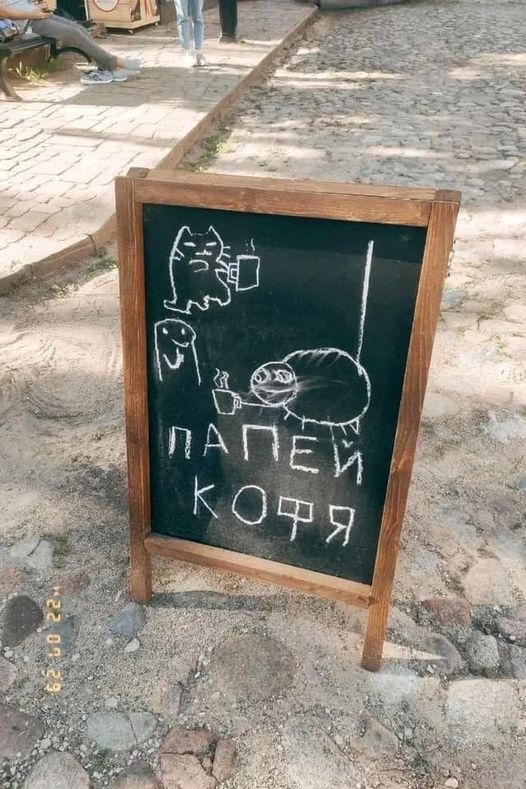 ПАПЕЙ
КОФЯ
'22 07 29